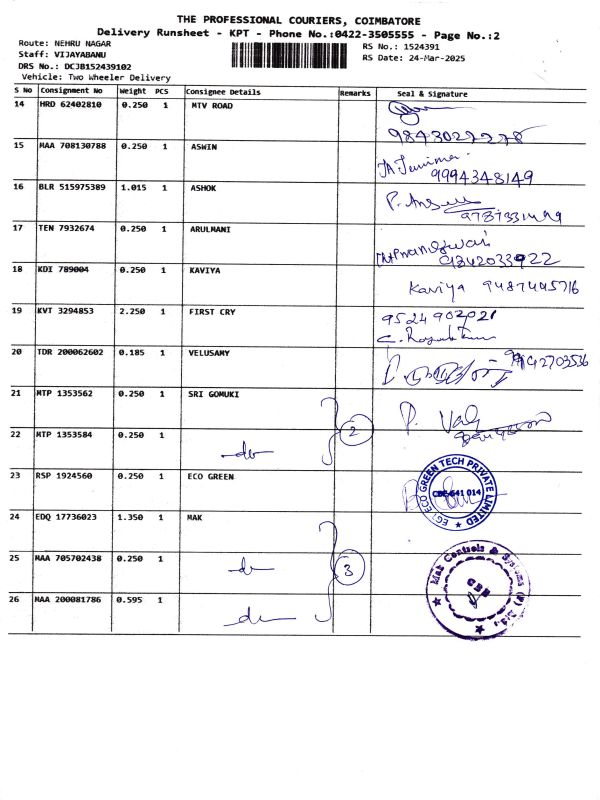 THE PROFESSIONAL COURIERS, COIMBATORE
Delivery Runsheet - KPT - Phone No.:0422-3505555 - Page No.:2
Route: NEHRU NAGAR
RS No.: 1524391
Staff: VIJAYABANU
RS Date: 24-Mar-2025
DRS No.: DCJB152439102
Vehicle: Two Wheeler Delivery
S No Consignment No Weight PCS Consignee Details Remarks Seal & Signature
14 HRD 62402810 0.250 1 MTV ROAD
9843027278
15 MAA 708130788 0.250 1 ASWIN
9994348149
16 BLR 515975389 1.015 1 ASHOK
17 TEN 7932674 0.250 1 ARULMANI
9342033922
18 KDI 789004 0.250 1 KAVIYA
Kaviya 9487445716
19 KVT 3294853 2.250 1 FIRST CRY
9524902021
20 TDR 200062602 0.185 1 VELUSAMY
21 MTP 1353562 0.250 1 SRI GOMUKI
22 MTP 1353584 0.250 1
do 2
23 RSP 1924560 0.250 1 ECO GREEN
EGI ECO GREEN TECH PRIVATE LIMITED
CBE-641 014
24 EDQ 17736023 1.350 1 MAK
25 MAA 705702438 0.250 1
do 3
Mak Controls & Systems (P) Ltd.
CBE
26 MAA 200081786 0.595 1
do